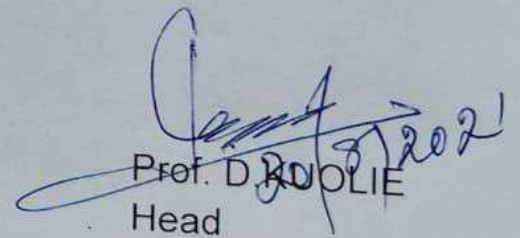 20/8/2021
Prof. D. KUOLIE
Head